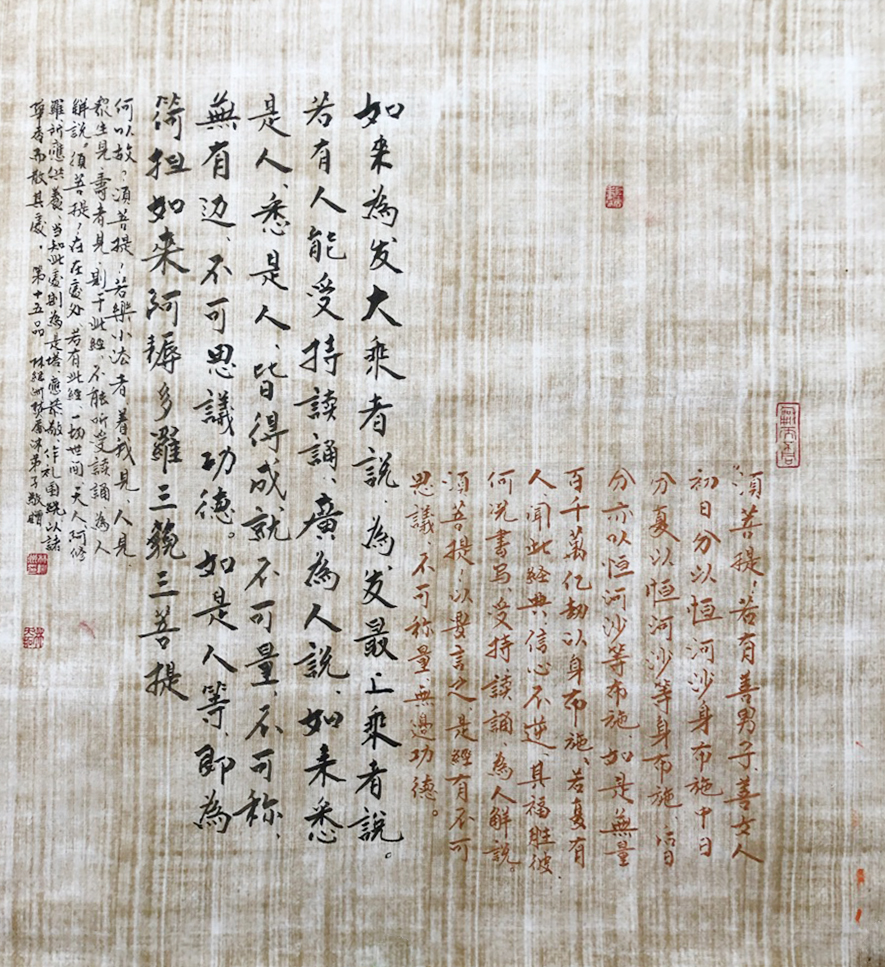 須菩提！若有善男子善女人
初日分以恒河沙身布施中日
分复以恒河沙等身布施、后日
分亦以恒河沙等布施如是無量
百千萬亿劫以身布施、若复有
人闻此经典、信心不逆、其福胜彼
何况書写、受持读誦、為人解說。
須菩提！以要言之、是经有不可
思議、不可称量、無邊功德。
如来為发大乘者說、為发最上乘者說。
若有人能受持读誦、廣為人說、如来悉
是人、悉是人、皆得成就不可量、不可称、
無有边、不可思議功德。如是人等、即為
荷担如来阿耨多羅三藐三菩提
何以故？須菩提！若樂小法者、着我見、人見、
衆生見、壽者見、則于此经、不能听受读誦、為人
解說。須菩提！在在處处、若有此经、一切世间、天人阿修
羅、所應供養、当知此處则為是塔、應恭敬、作礼围绕、以諸
華香而散其處。第十五品 弟子敬赠